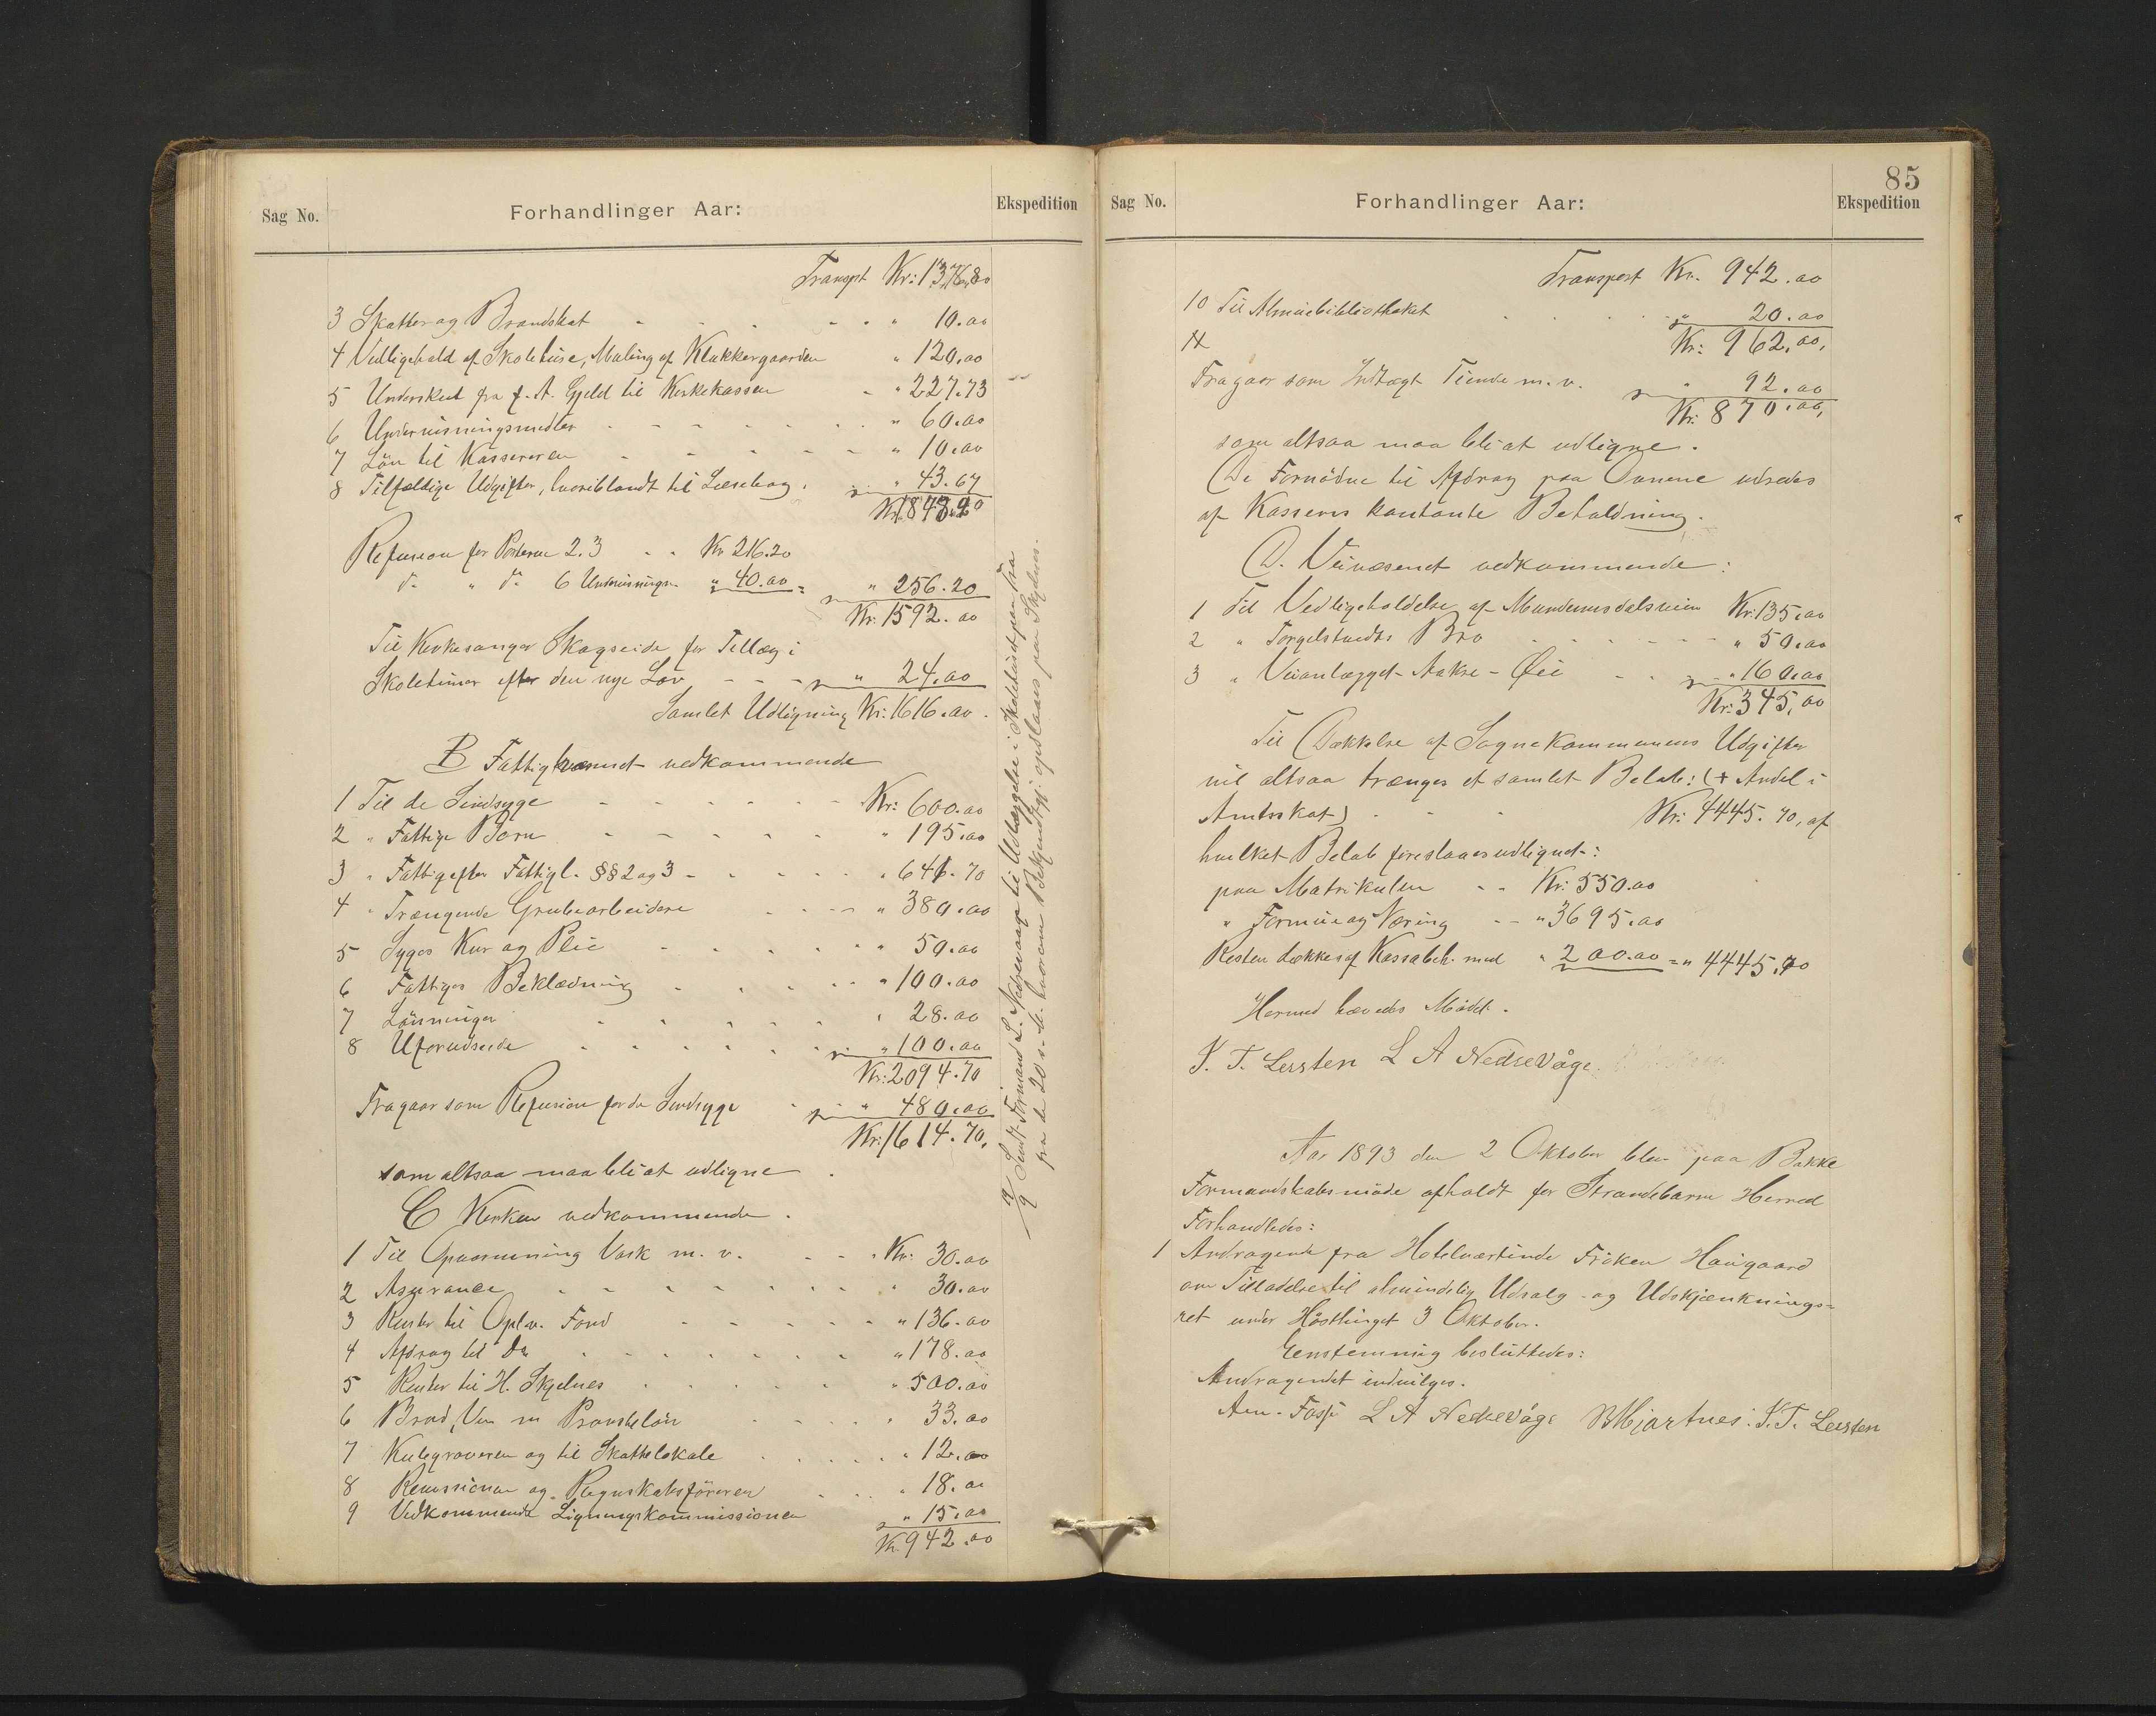 Sag No.
Forhandlinger Aar:
Ekspedition
Transpt Kr: 1376,80
3 Skatter og Brandskat - - - - - " 10.00
4 Vedligehald af Skolehuse, Maling af Klokkergaarden " 120.00
5 Underskud fra f. A. Gjeld til Kirkekassen - " 227.73
6 Undervisningsmidler - - - - - - " 60.00
7 Løn til Kassereren - - - - - " 10.00
8 Tilfældige Udgifter, hvoriblandt til Læsebog . " 43.67
Kr. 1848.20
Refusion for Posterne 2.3 - - Kr 216.20
do " do 6 Undervisningsm. " 40.00 = " 256.20
Kr. 1592.00
Til Kirkesanger Skogseide for Tillæg i
Skoletimer efter den nye Lov - - - " 24.00
Samlet Udligning Kr: 1616.00.
B Fattigvæsenet vedkommende
1 Til de Sindsyge - - - - - - Kr: 600.00
2 " Fattige Børn - - - - - " 195.00
3 " Fattige efter Fattigl. §§ 2 og 3 - - - - - " 641.70
4 " Trængende Grubearbeidere - - - - " 380.00
5 Syges Kur og Pleie - - - - - - " 50.00
6 Fattiges Beklædning - - - - - " 100.00
7 Lønninger - - - - - " 28.00
8 Uforudseede - - - - - - " 100.00
Kr: 2094.70
Fragaar som Refusion for de Sindsyge - " 480.00
Kr: 1614.70.
som altsaa maa bli at udligne.
C Kirken vedkommende.
1 Til Opvarmning Vask m. v. - - - Kr: 30.00
2 Assurance - - - - - - - " 30.00
3 Renter til Oplv. Fond - - - - - " 136.00
4 Afdrag til Do - - - - - - - " 178.00
5 Renter til H. Skjelnes - - - - - " 500.00
6 Brød, Vin m Provsteløn - - - - " 33.00
7 Kulegraveren og til Skattelokale - - - - - " 12.00
8 Revisionen og Regnskabsføreren - - - " 18.00
9 Vedkommende Ligningskommissionen " 15.00
Kr. 942.00
19/9 Sendt Formand L. Nedrevaage til Udlæggelse i Skolehuset paa Fra
fra de 20 s. M. hvorom Bekjendtgj. opslaaes paa Skjelnes.
85
Sag No.
Forhandlinger Aar:
Ekspedition
Transport Kr. 942.00
10 Til Almuebibliotheket - - - - " 20.00
Kr: 962,00,
Fragaar som Indtægt Tiende m. v. " 92.00
Kr: 870.00,
som altsaa maa bli at udligne.
De Fornødne til Afdrag paa Ovnene udredes
af Kassens kontante Beholdning.
D. Veivæsenet vedkommende:
1 Til Vedligeholdelse af Mundheimsdalsveien Kr. 135.00
2 " Torgelstvedts Bro - - - - - - " 50.00
3 " Veianlægget Aakre - Øie - - " 160.00
Kr: 345,00
Til Dækkelse af Sognekommunens Udgifter
vil altsaa trænges et samlet Beløb: (+ Andel i
Amtsskat) - - - Kr: 4445.70, af
hvilket Beløb foreslaaes udlignet:
paa Matrikulen - - Kr: 550.00
" Formue og Næring - - " 3695.00
Resten dækkes af Kassabeh. med " 200.00 = " 4445.70
Hermed hævedes Mødet.
J. T. Lersten L A Nedrevåge
Aar 1893 den 2 Oktober blev paa Bakke
Formandskabsmøde afholdt for Strandebarm Herred
Forhandledes:
1 Andragende fra Hotelværtinde Frøken Haugaard
om Tilladelse til almindelig Udsalg- og Udskjænknings-
ret under Høstthinget 3 Oktober.
Eenstemmig besluttedes:
Andragendet indvilges.
Am. Fosse L A Nedrevåge B Mjartnes. J. T. Lersten